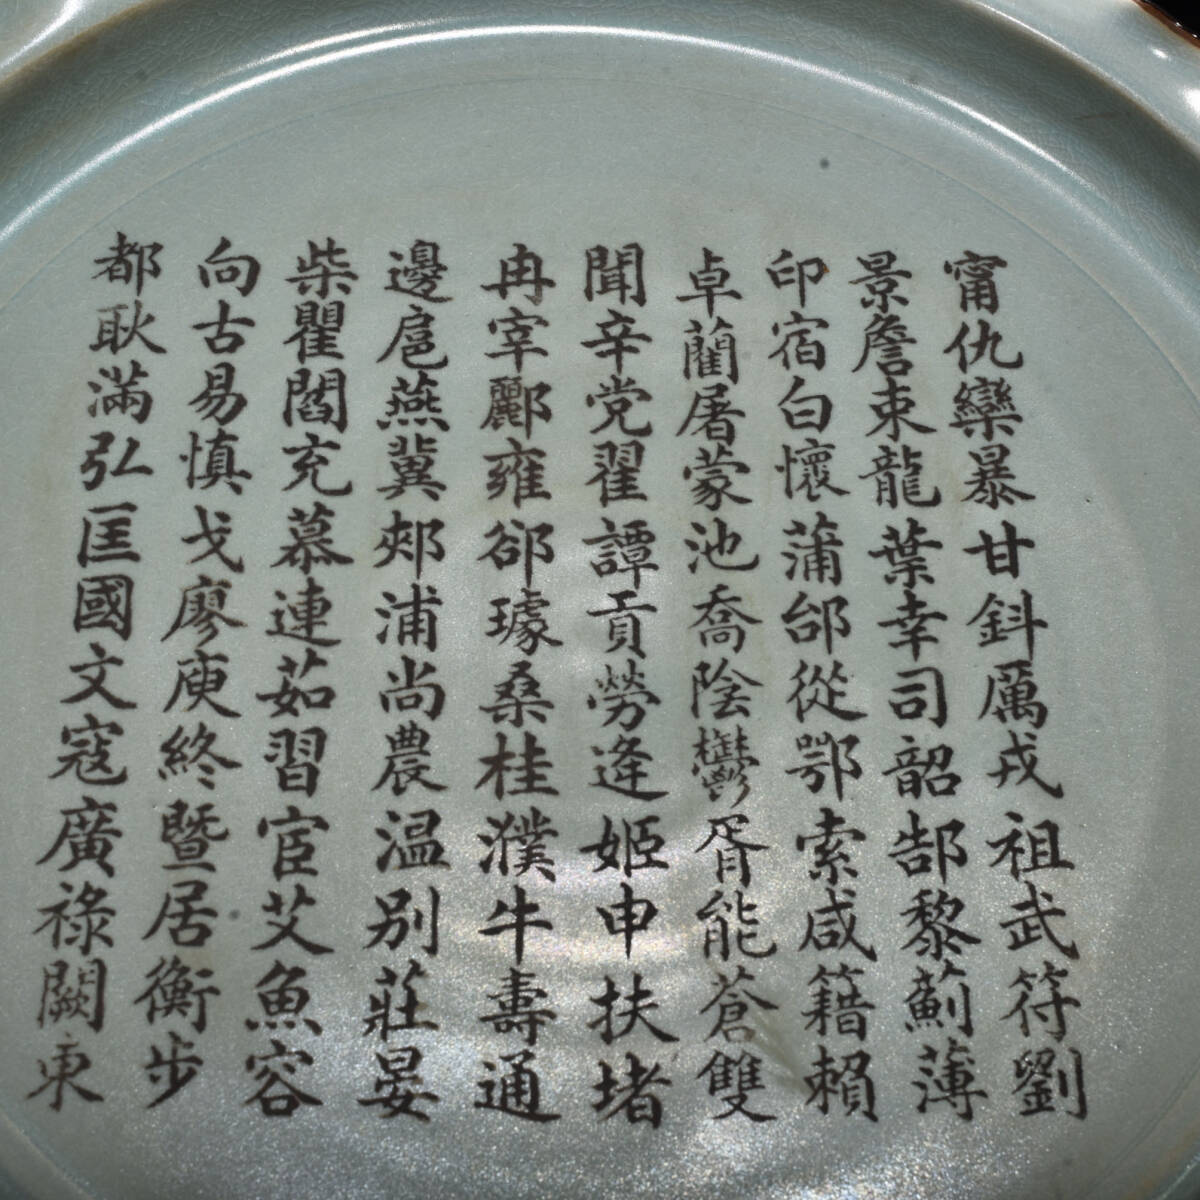 甯仇欒暴甘鈄厲戎祖武符劉
景詹束龍葉幸司韶郜黎薊薄
印宿白懷蒲邰從鄂索咸籍賴
卓藺屠蒙池喬陰鬱胥能蒼雙
聞辛党翟譚貢勞逄姬申扶堵
冉宰酈雍郤璩桑桂濮牛壽通
邊扈燕冀郟浦尚農温别莊晏
柴瞿閻充慕連茹習宦艾魚容
向古易慎戈廖庾終暨居衡步
都耿滿弘匡國文寇廣祿闕東